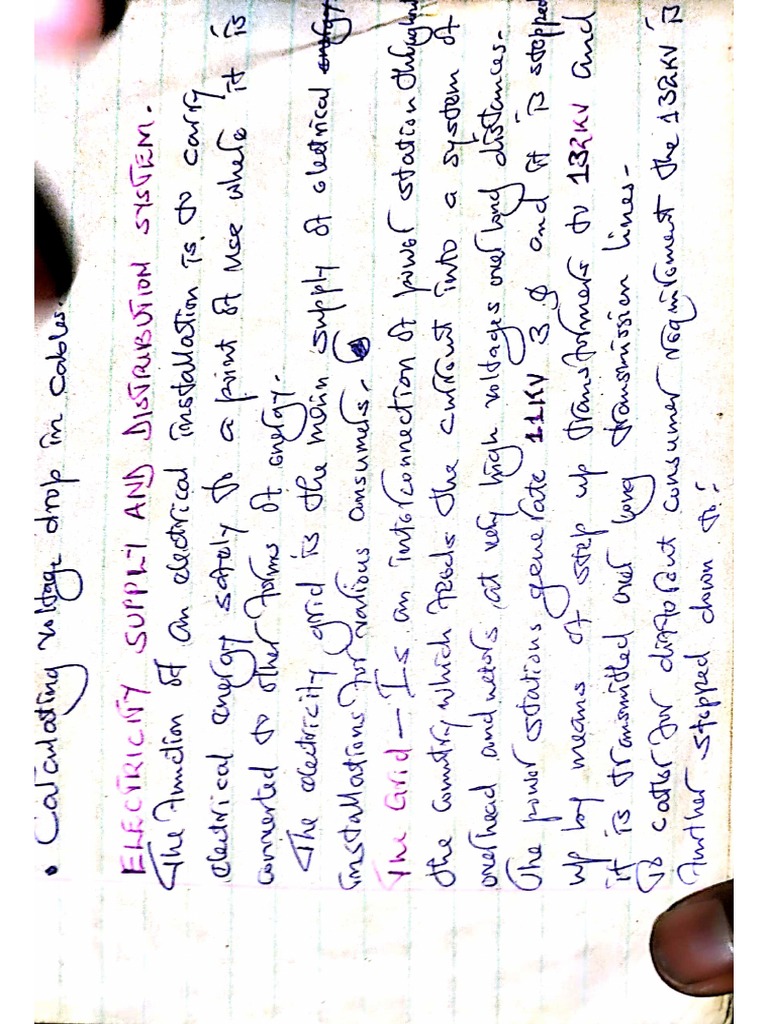 • Calculating voltage drop in cables.
ELECTRICITY SUPPLY AND DISTRIBUTION SYSTEM.
The function of an electrical installation is to carry
electrical energy safely to a point of use where it is
converted to other forms of energy.
The electricity grid is the main supply of electrical energy
installations for various consumers.
The Grid - Is an interconnection of power station throughout
the country which feeds the current into a system of
overhead conductors at very high voltages over long distances.
The power stations generate 11KV 3 φ and it is stepped
up by means of step up transformers to 132KV and
it is transmitted over long transmission lines.
To cater for different consumer requirement the 132KV is
further stepped down to: